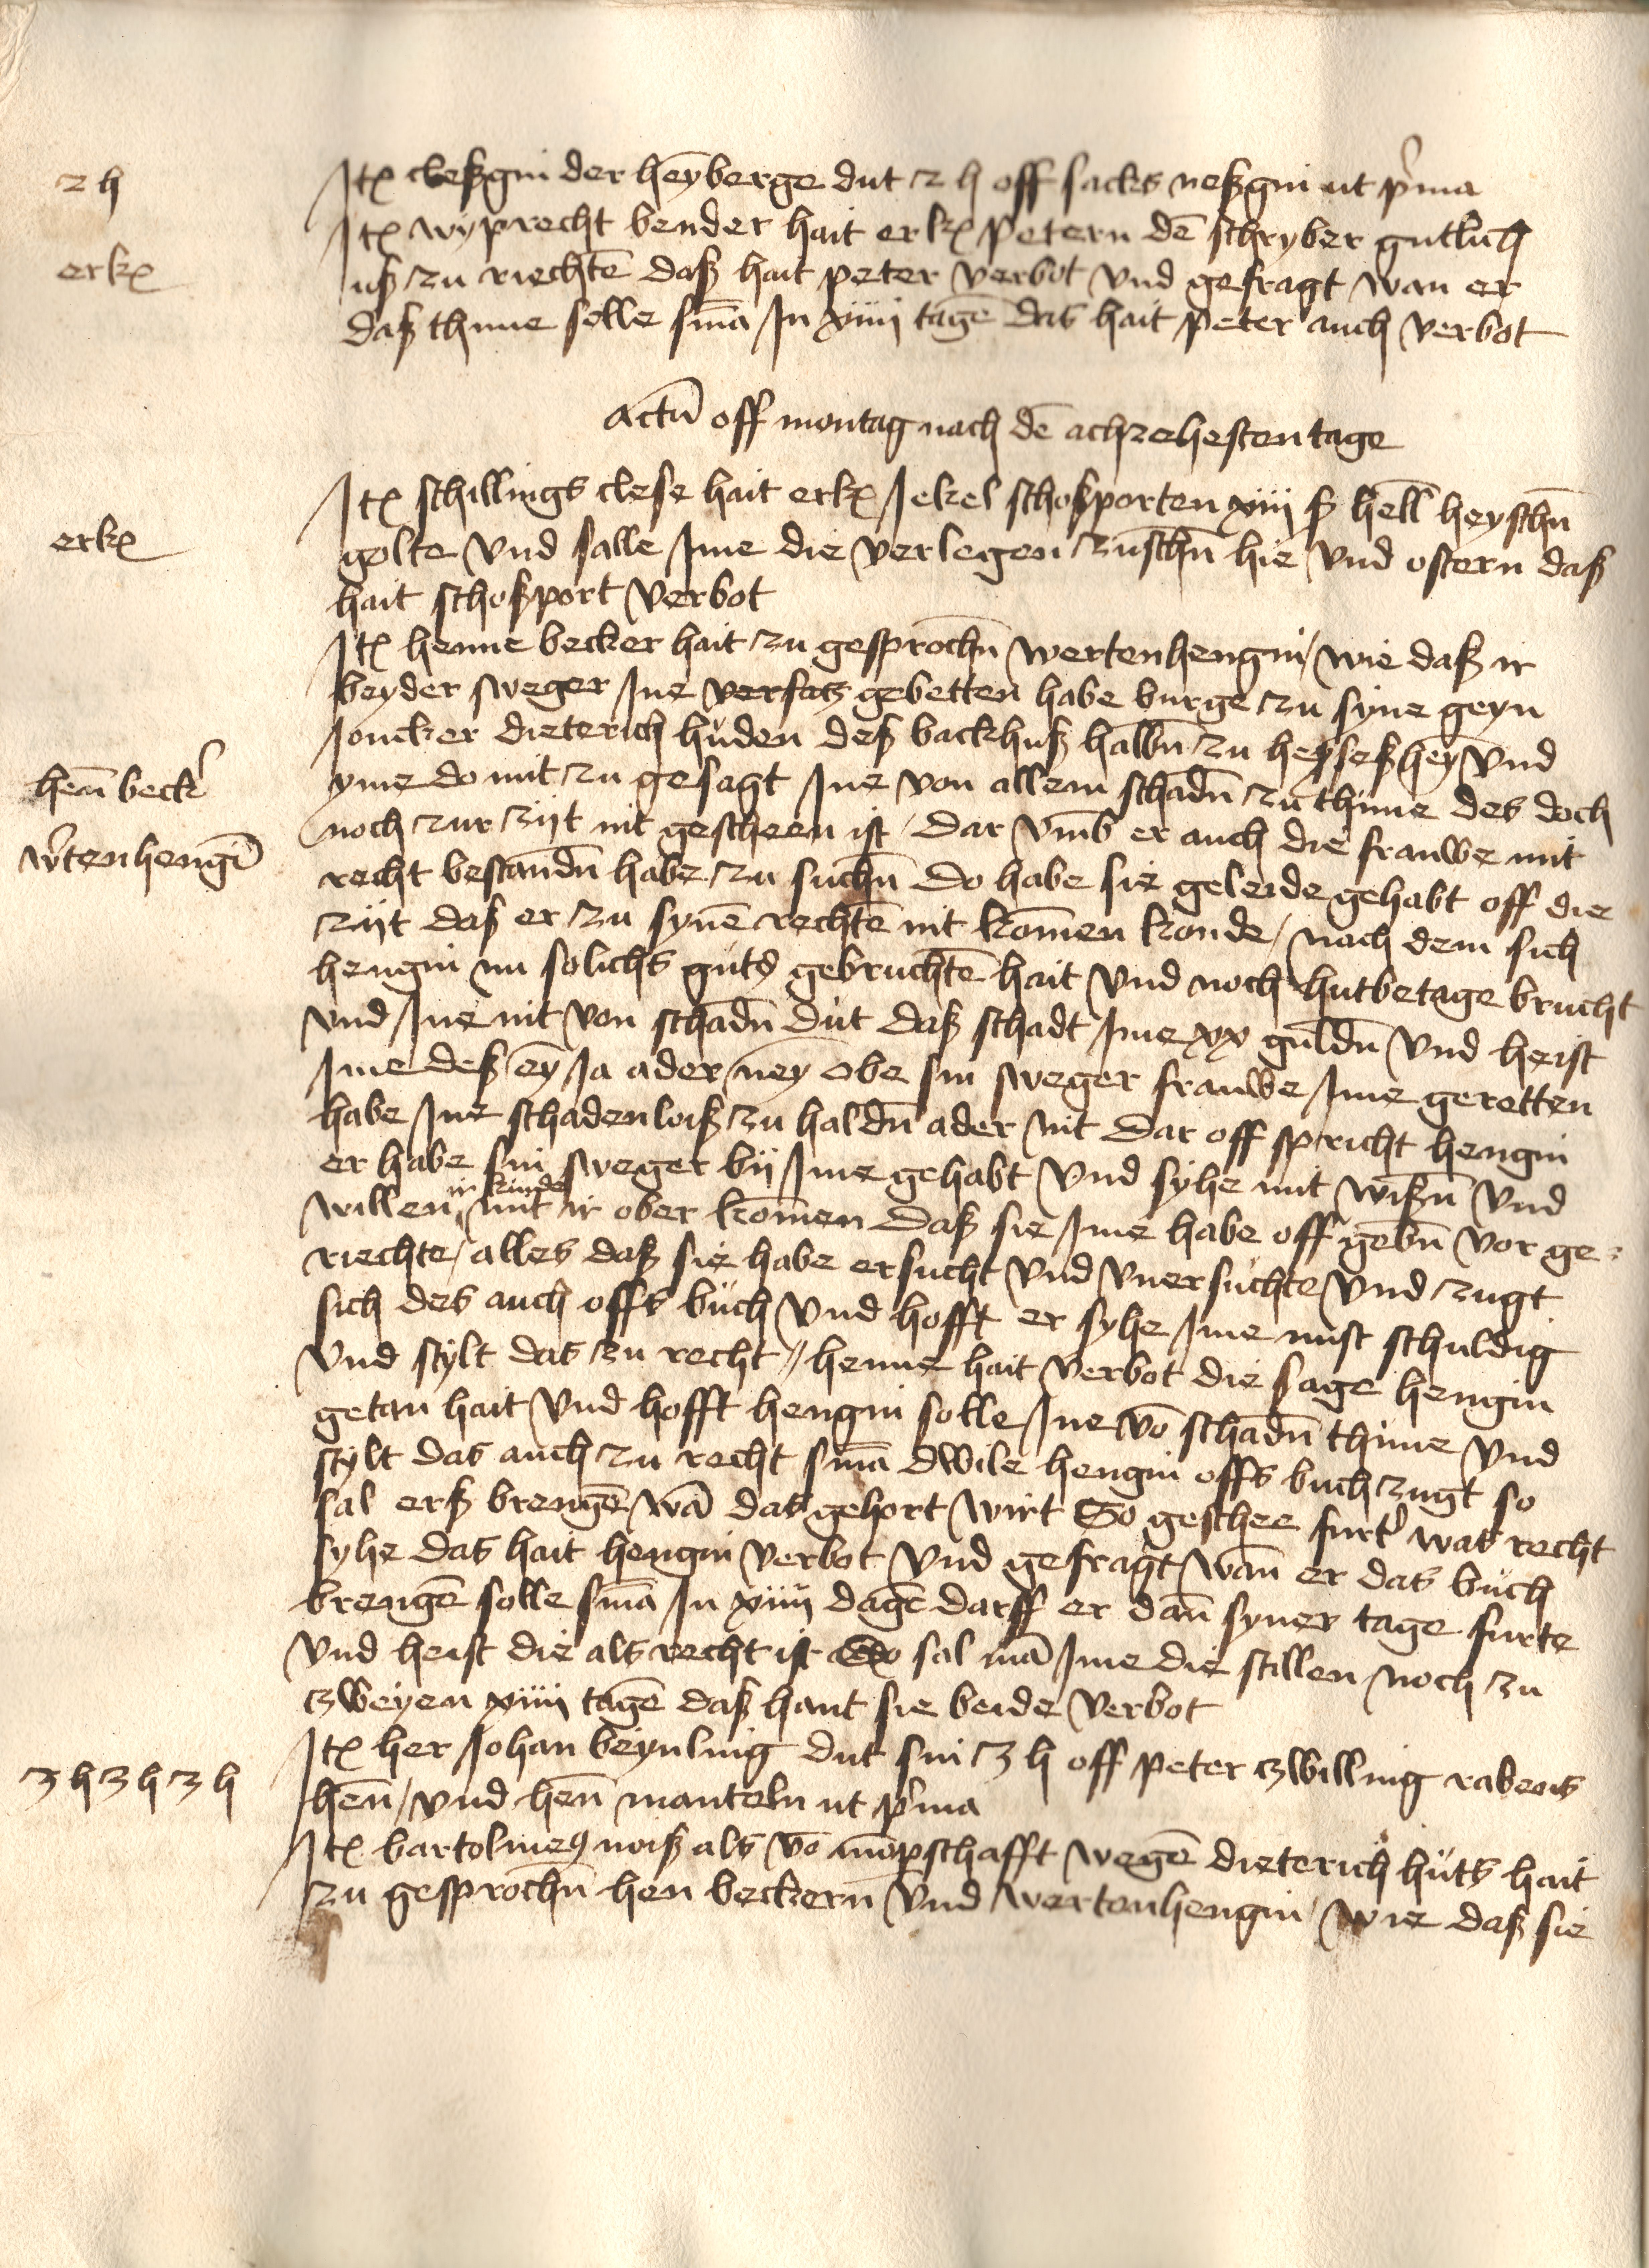 2 h
Itꝫ cleßgin der heyberge dut 2 h off sacks neßgin ut p̍ma
erkꝫ
Itꝫ wyprecht bender hait erkꝫ Petern dē schryber gutlich
uß zu riechtē daß hait peter verbot vnd gefragt wan er
daß thune solle sn̄ia In xiiij tagē das hait Peter auch verbot
Actū off montag nach dē achzehesten tage
erkꝫ
Itꝫ schillings clese hait erkꝫ Jekel schoßporten xiiij ß hell heyschn̄
golte vnd salle Ime die verlegen zuschn̄ hie vnd ostern daß
hait schoßport verbot
Itꝫ henne becker hait zu gesprochn̄ wertenhengin / wie daß ir
beyder sweger Ine versatz gebetten habe burge zu syne geyn
Joncker dieterich huden deß backhuß halbn̄ zu heyseßhey vnd
hen̄ beck̍
yme do mit zu gesagt Ine von allem schadn̄ zu thune des doch
w̍tenhengī
noch zur zijt nit gescheen ist / dar vmb er auch die frauwe mit
recht bestandn̄ habe zu suchn̄ do habe sie geleide gehabt off die
zijt daß er zu synē rechtē nit komen konde / nach dem sich
hengin nu solichs guts gebruchtē hait vnd noch hutbetage brucht
vnd Ine nit von schadn̄ dut daß schadt Ime xx guldn̄ vnd heist
Ime deß ey Ja ader ney Obe sin sweger frauwe Ime geretten
habe Ine schadenloiß zu haldn̄ ader nit Dar off spricht hengin
er habe sin sweger bij Ime gehabt vnd syhe mit wißn̄ vnd
willen ir kinde mit ir ober komen daß sie Ime habe off gebn̄ vor ge-
riechte / alles daß sie habe ersucht vnd vnersuchte vnd zugt
sich des auch offs buch vnd hofft er syhe Ime nust schuldig
vnd stylt das zu recht // henne hait verbot die sage hengin
getan hait vnd hofft hengin solle Ine vō schadn̄ thune vnd
stylt das auch zu recht sn̄ia dwile hengin offs buch zugt so
sal erß brengē wā das gehort wirt So geschee furt̍ was recht
syhe das hait hengin verbot vnd gefragt wan̄ er das buch
brengē solle sn̄ia In xiiij dagē darff er dan̄ syner tage furte
vnd heist die als recht ist So sal mā Ime die stillen noch zu
zweyen xiiij tagē daß hant sie beide verbot
3 h 3 h 3 h
Itꝫ her Johan beynling dut sin 3 h off Peter zwilling rabens
hen̄ / vnd hen̄ manteln ut p̍ma
Itꝫ bartolmeꝯ noiß als vō mōpschafft wegē dieterich huts hait
zu gesprochn̄ hen beckern̄ vnd wertenhengin / wie daß sie